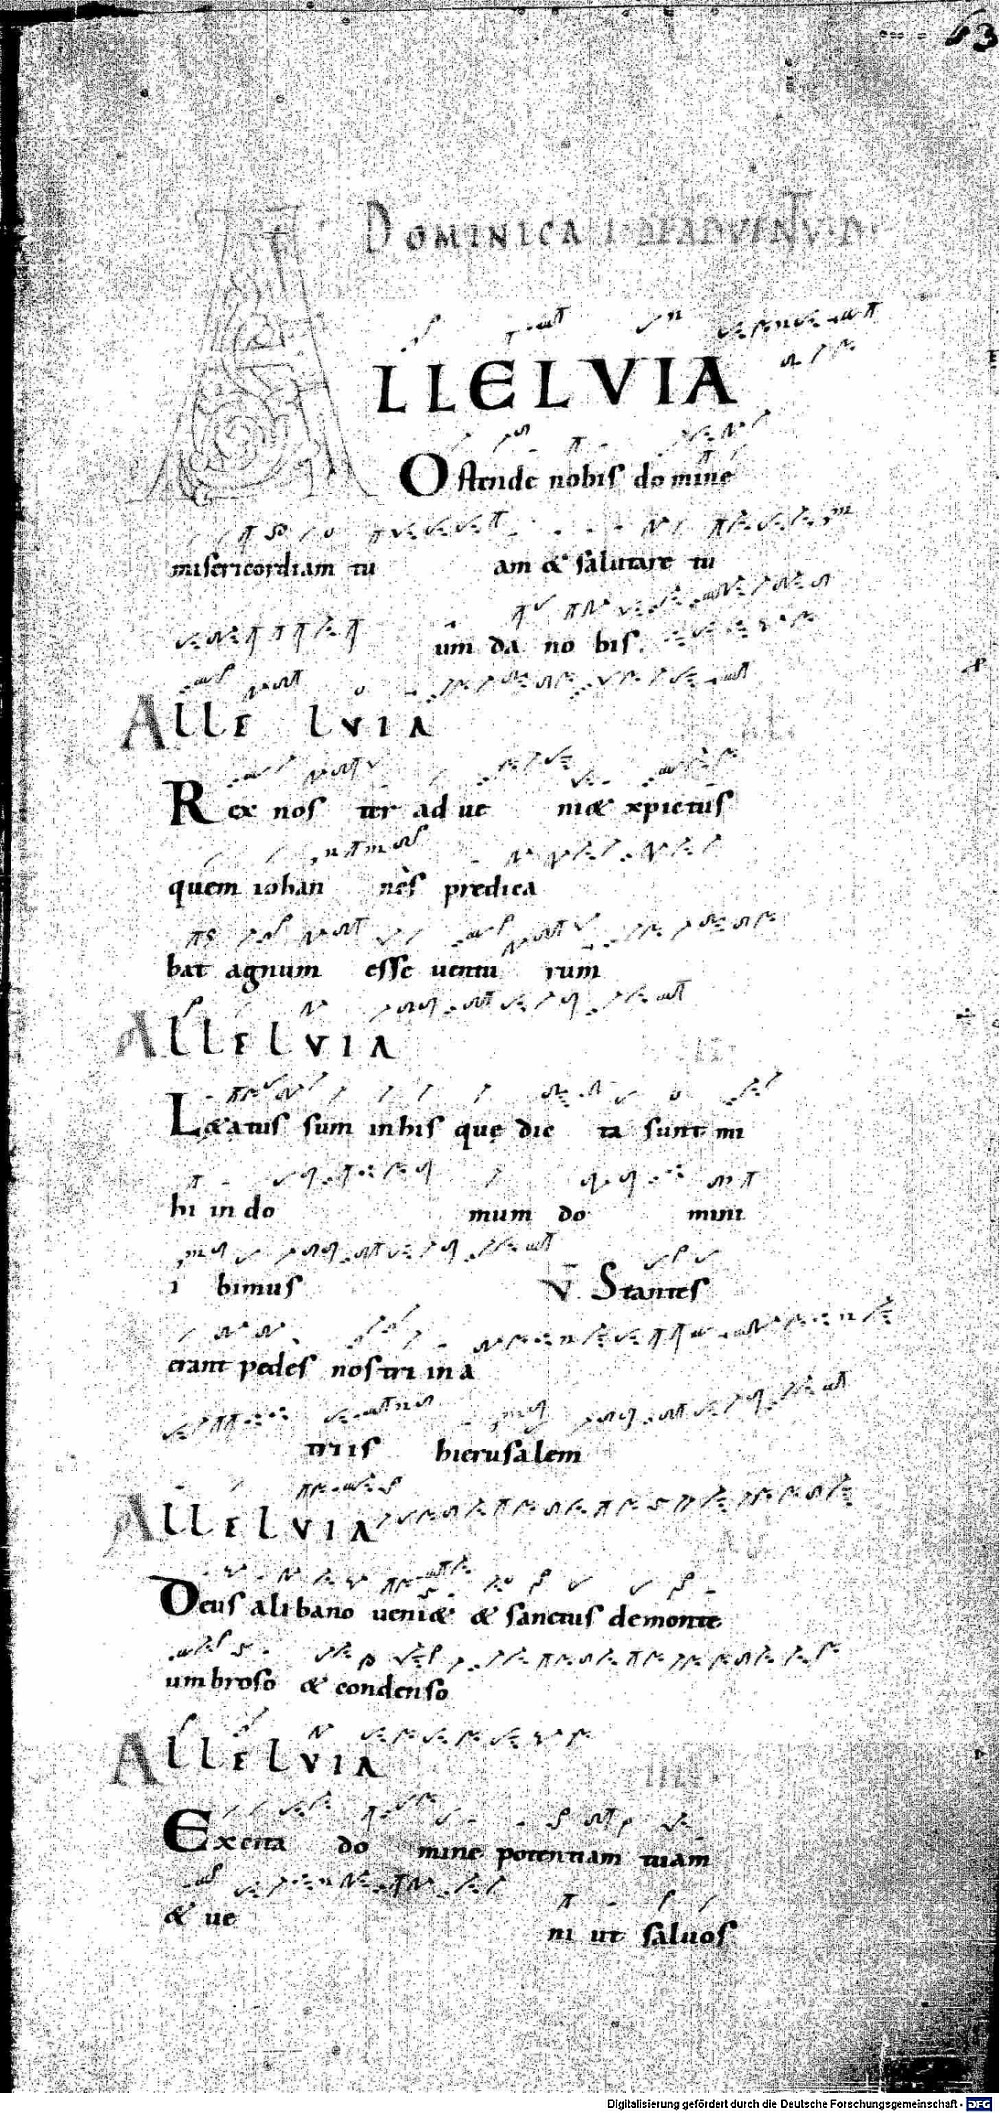 63
DOMINICA I DE ADVENTV D
ALLELVIA
Ostende nobis domine
misericordiam tu am & salutare tu
um da no bis.
ALLE LVIA
Rex nos ter ad ue ni& xpictus
quem iohan nes predica
bat agnum esse uentu rum
ALLELVIA
L&atus sum in his quę dic ta sunt mi
hi in do mum do mini
i bimus V. Stantes
erant pedes nostri in a
triis hierusalem
ALLELVIA
Deus alibano ueni& & sanctus demonte
umbroso & condenso
ALLELVIA
Excita do mine potentiam tuam
& ue ni ut saluos
Digitalisierung gefördert durch die Deutsche Forschungsgemeinschaft - DFG